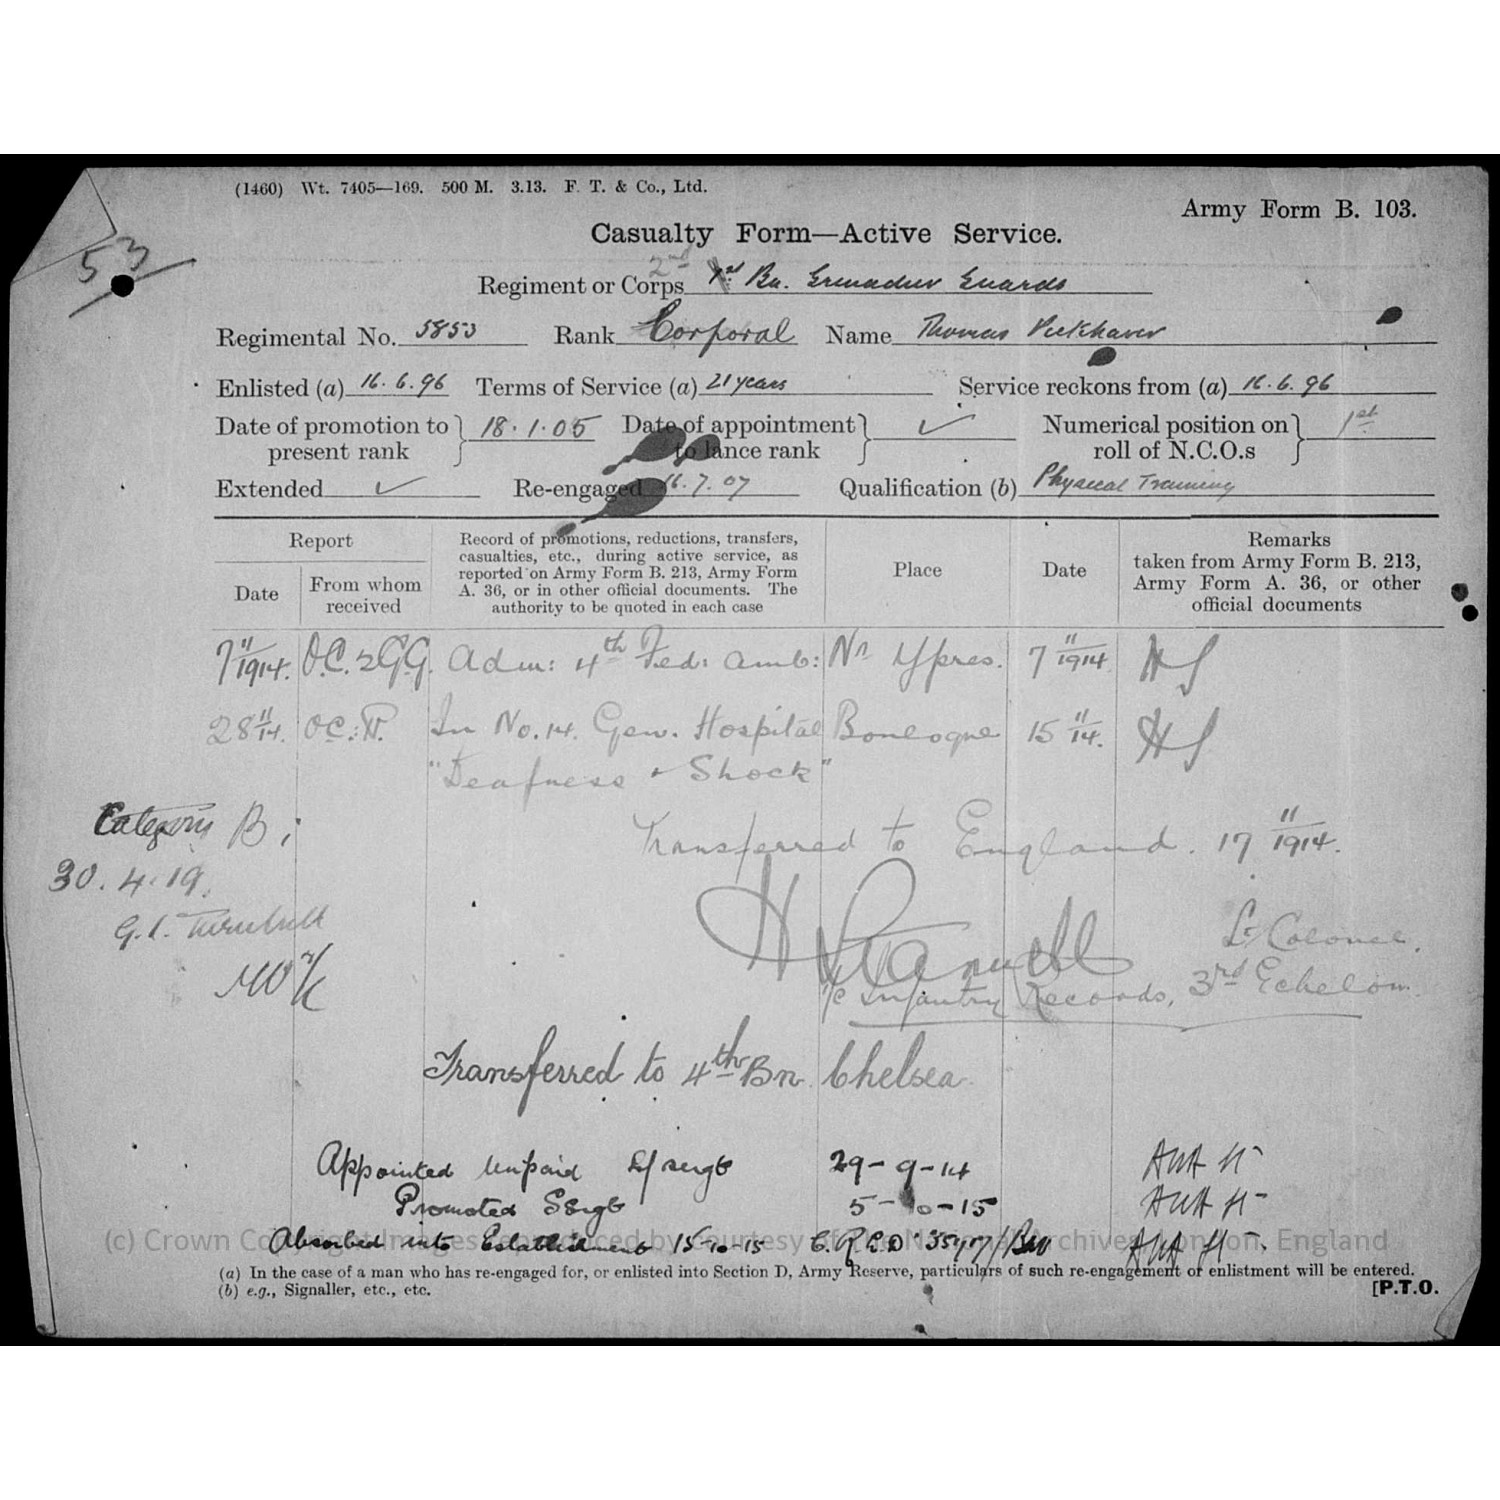 (1460) Wt. 7405—169. 500 M. 3.13. F. T. & Co., Ltd.
Army Form B. 103.
53
Casualty Form—Active Service.
Regiment or Corps 2nd 1st Bn. Grenadier Guards
Regimental No. 5853 Rank Corporal Name Thomas
Enlisted (a) 16.6.96 Terms of Service (a) 21 years Service reckons from (a) 16.6.96
Date of promotion to present rank 18.1.05 Date of appointment to lance rank ✓ Numerical position on roll of N.C.O.s 1st
Extended ✓ Re-engaged 16.7.07 Qualification (b) Physical Training
Report
Date
From whom received
Record of promotions, reductions, transfers, casualties, etc., during active service, as reported on Army Form B. 213, Army Form A. 36, or in other official documents. The authority to be quoted in each case
Place
Date
Remarks taken from Army Form B. 213, Army Form A. 36, or other official documents
7 11/1914. O.C. 2GG. Adm: 4th Fed: Amb: Nr Ypres. 7 11/1914
28 11/14. In No. 14. Gen. Hospital Boulogne 15 11/14.
"Deafness & Shock"
Transferred to England. 17 11/1914.
Category B i
30.4.19.
G. L. Turnbull
Lt Colonel.
i/c Infantry Records, 3rd Echelon.
Transferred to 4th Bn Chelsea
Appointed Unpaid L/sergt 29-9-14
Promoted Sergt 5-10-15
Absorbed into Establishment 15-10-15
(c) Crown Copyright Images reproduced by courtesy of The National Archives, London, England
(a) In the case of a man who has re-engaged for, or enlisted into Section D, Army Reserve, particulars of such re-engagement or enlistment will be entered.
(b) e.g., Signaller, etc., etc.
[P.T.O.